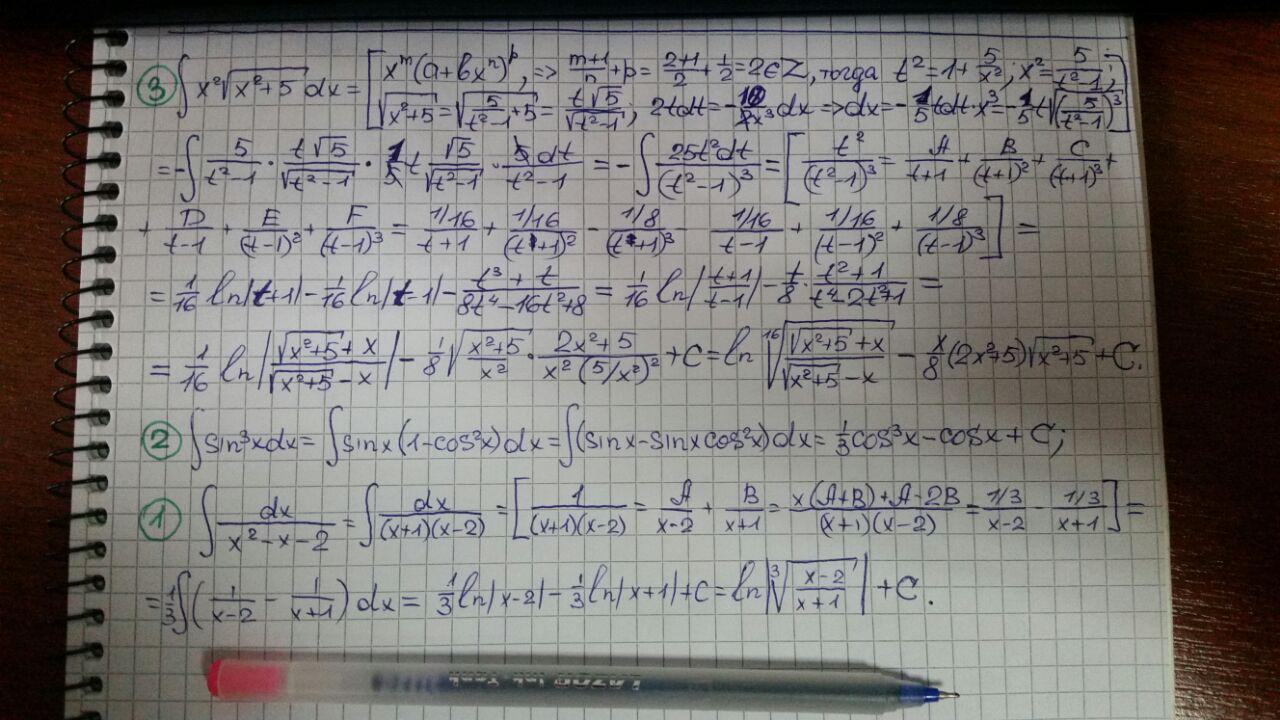 ③ ∫x²√(x²+5) dx = [xᵐ(a+bxⁿ)ᵖ, => (m+1)/n + p = (2+1)/2 + 1/2 = 2∈Z, тогда t² = 1 + 5/x²; x² = 5/(t²-1);
√(x²+5) = √(5/(t²-1) + 5) = t√5/√(t²-1); 2tdt = -10/x³ dx => dx = -1/5 tdt·x³ = -1/5 t√(5/(t²-1))³]
= -∫ 5/(t²-1) · t√5/√(t²-1) · 1/5 t √5/√(t²-1) · 5dt/(t²-1) = -∫ 25t²dt/(t²-1)³ = [t²/(t²-1)³ = A/(t+1) + B/(t+1)² + C/(t+1)³ +
+ D/(t-1) + E/(t-1)² + F/(t-1)³ = (1/16)/(t+1) + (1/16)/(t+1)² - (1/8)/(t+1)³ - (1/16)/(t-1) + (1/16)/(t-1)² + (1/8)/(t-1)³] =
= 1/16 ln|t+1| - 1/16 ln|t-1| - (t³+t)/(8t⁴-16t²+8) = 1/16 ln|(t+1)/(t-1)| - t/8 · (t²+1)/(t⁴-2t²+1) =
= 1/16 ln|(√(x²+5)+x)/(√(x²+5)-x)| - 1/8 √((x²+5)/x²) · (2x²+5)/(x²(5/x²)²) + C = ln ¹⁶√((√(x²+5)+x)/(√(x²+5)-x)) - x/8 (2x²+5)√(x²+5) + C.
② ∫sin³xdx = ∫sinx(1-cos²x)dx = ∫(sinx-sinxcos²x)dx = 1/3 cos³x - cosx + C;
① ∫ dx/(x²-x-2) = ∫ dx/((x+1)(x-2)) = [1/((x+1)(x-2)) = A/(x-2) + B/(x+1) = (x(A+B)+A-2B)/((x+1)(x-2)) = (1/3)/(x-2) - (1/3)/(x+1)] =
= 1/3 ∫(1/(x-2) - 1/(x+1)) dx = 1/3 ln|x-2| - 1/3 ln|x+1| + C = ln|³√((x-2)/(x+1))| + C.